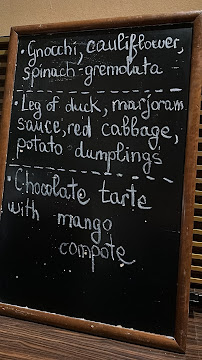 • Gnocchi, cauliflower,
spinach-gremolata
• Leg of duck, marjoram
sauce, red cabbage,
potato dumplings
• Chocolate tarte
with mango
compote